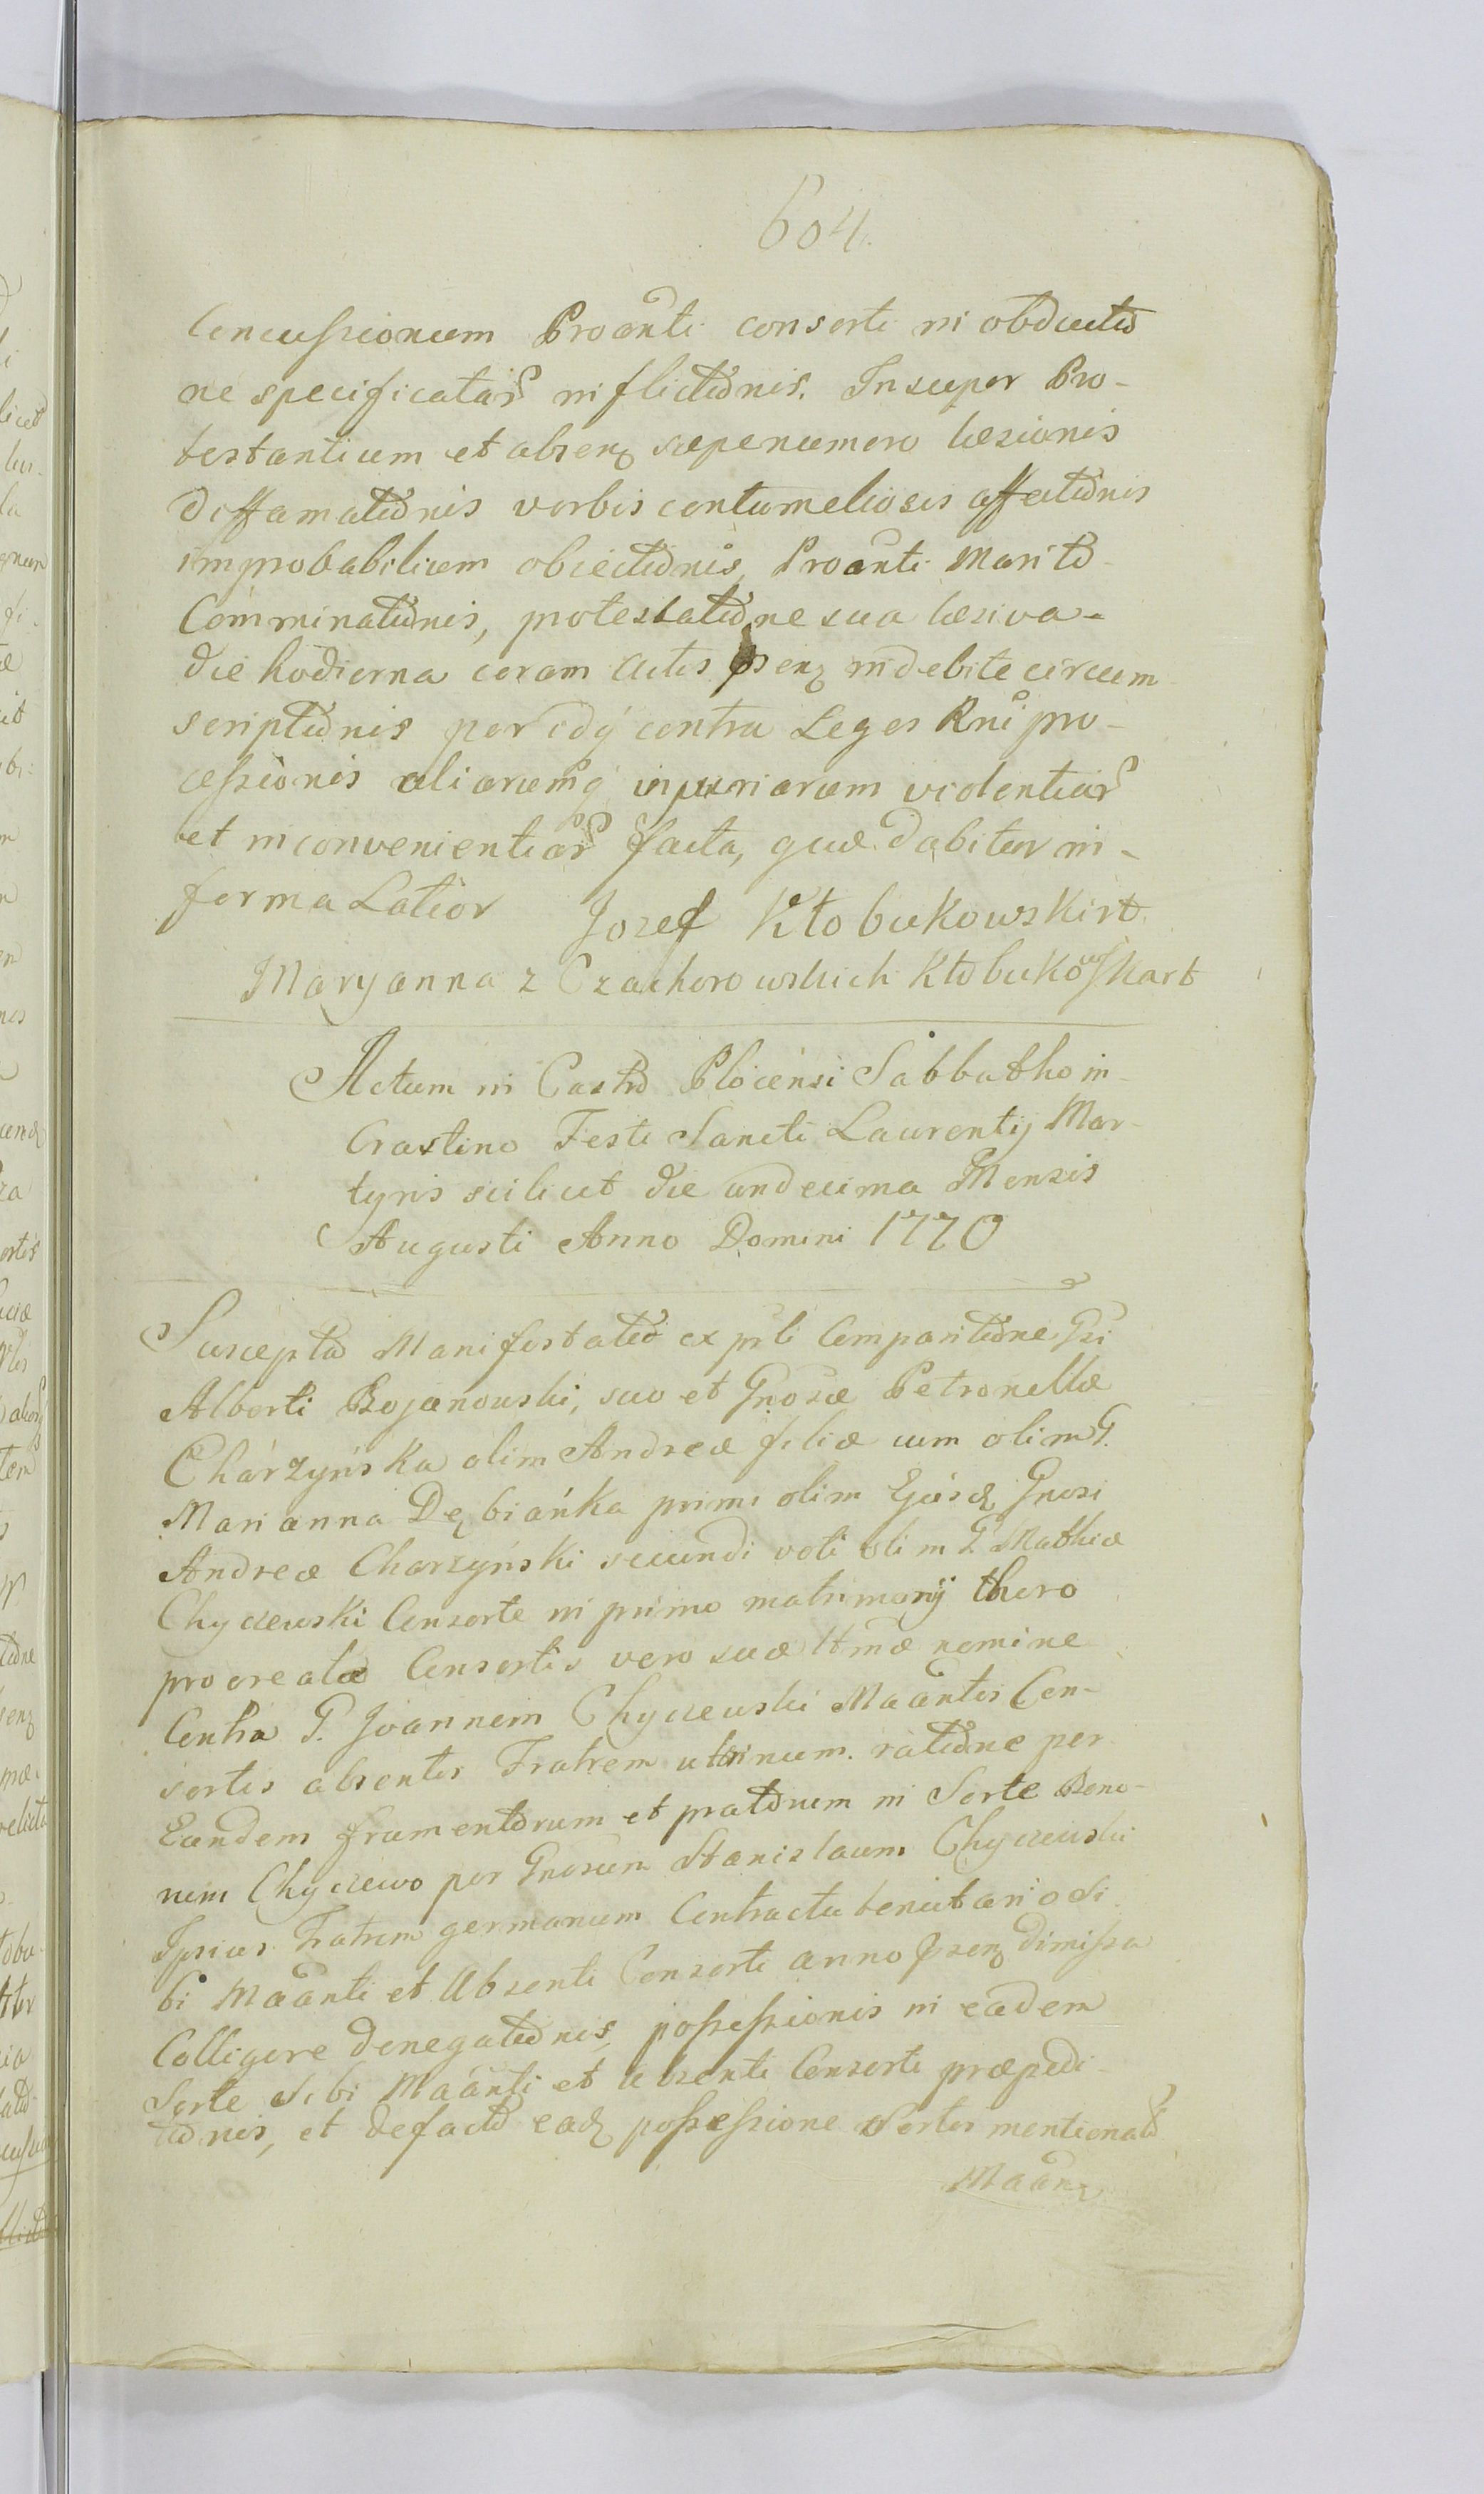 604.
Concussionum Proanti consorti in obductio
ne specificatar inflictionis. Insuper Pro-
testantium et absenz saepenumero laesionis
Diffamationis verbis contumeliosis affectionis
improbabilium obiectionis, Proanti Marito
Comminationis, protestatione sua laesiva-
die hodierna coram Actis psenz indebite circum
scriptionis per idq contra Leges Rni pro-
cessionis aliarumq injuriarum violentiar
et inconvenientiar facta, quae dabitur in-
forma Latior Jozef Kłobukowski rt
Maryanna z Czachorowskich Kłobukowska rt
Actum in Castro Plocensi Sabbatho in
Crastino Festi Sancti Laurentij Mar-
tyris scilicet die undecima Mensis
Augusti Anno Domini 1770
Suscepta Manifestatio ex prli Comparitione Gsi
Alberti Bojanowski, suo et Gnosae Petronellae
Charzyńska olim Andreae filiae cum olim G.
Marianna Dębianka primi olim Ejusd Gnosi
Andreae Charzyński secundi voti olim G Mathiae
Chyczewski Consorte in primo matrimonij thoro
procreatae Consortis vero suae Ittmae nomine
Contra G. Joannem Chyczewski Maantis Con-
sortis absentis Fratrem uterinum. ratione per
Eundem frumentorum et pratorum in Sorte Bono-
rum Chyczewo per Gnosum Stanislaum Chyczewski
Ipsius Fratrem germanum Contractu tenutario Si
bi Maanti et Absenti Consorti anno psenz dimissa
Colligere denegationis, possessionis in eadem
Sorte Sibi Maanti et absenti Consorti praepedi-
tionis, et defacto eadz possessione Sortis mentionato
Maanz